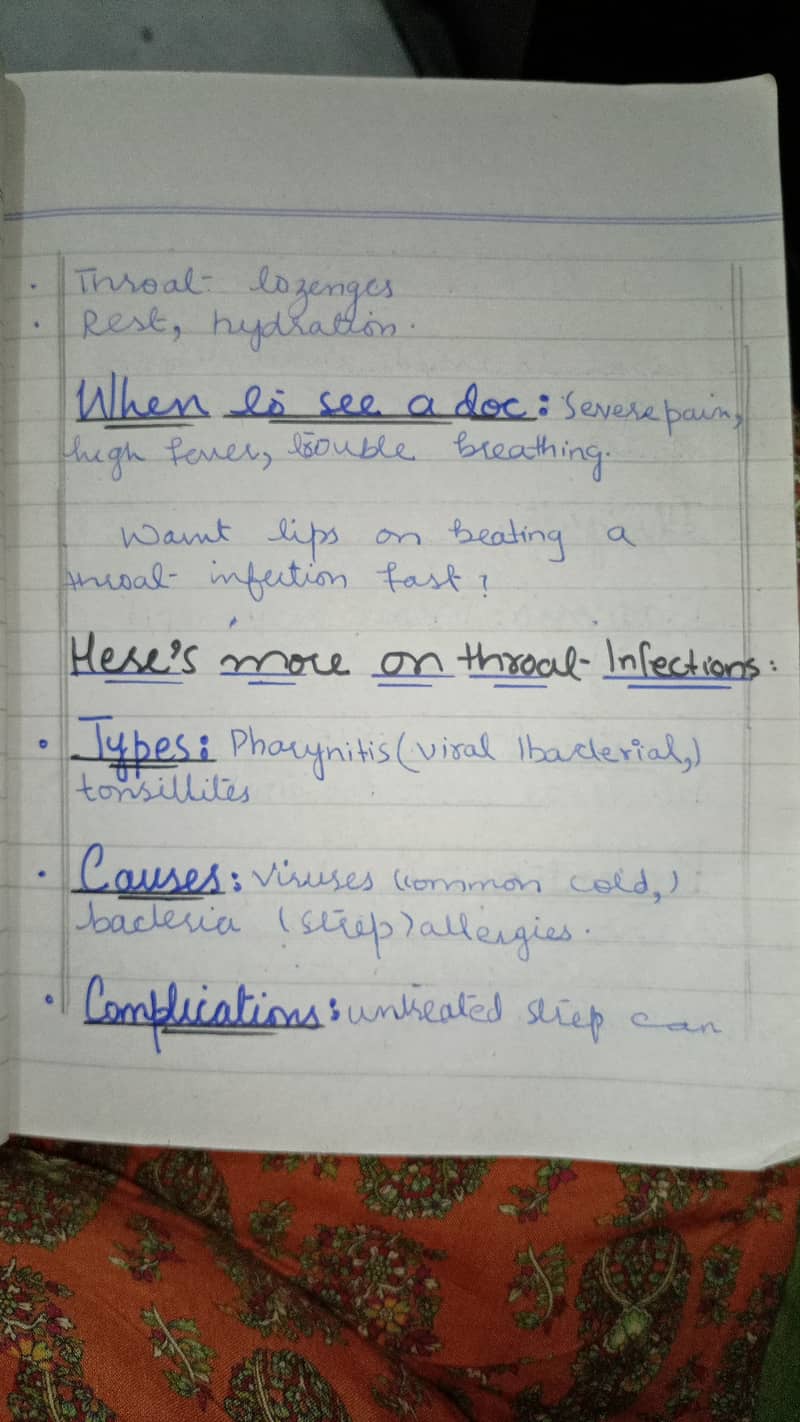 • Throat lozenges
• Rest, hydration.
When to see a doc: Severe pain,
high fever, trouble breathing.
Want tips on beating a
throat infection fast?
Here's more on throat Infections:
• Types: Pharynitis (viral |bacterial,)
tonsillites
• Causes: Viruses (common cold,)
bacteria (strep) allergies.
• Complications: untreated strep can